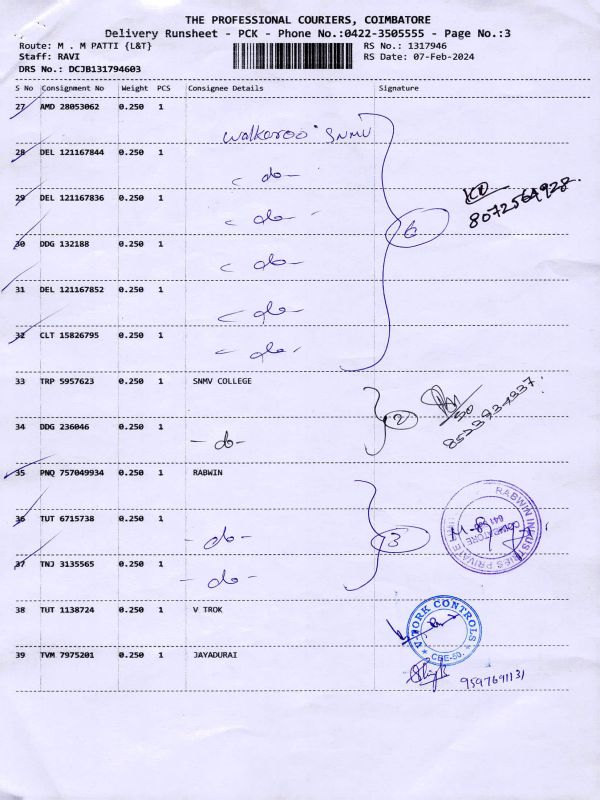 THE PROFESSIONAL COURIERS, COIMBATORE
Delivery Runsheet - PCK - Phone No.:0422-3505555 - Page No.:3
Route: M . M PATTI {L&T} RS No.: 1317946
Staff: RAVI RS Date: 07-Feb-2024
DRS No.: DCJB131794603
S No Consignment No Weight PCS Consignee Details Signature
27 AMD 28053062 0.250 1
Walkaroo SNMV
28 DEL 121167844 0.250 1
- do -
29 DEL 121167836 0.250 1
- do -
30 DDG 132188 0.250 1
- do -
6
31 DEL 121167852 0.250 1
- do -
32 CLT 15826795 0.250 1
- do -
33 TRP 5957623 0.250 1 SNMV COLLEGE
34 DDG 236046 0.250 1
- do -
2
35 PNQ 757049934 0.250 1 RABWIN
36 TUT 6715738 0.250 1
- do -
3
RABWIN INDUSTRIES PRIVATE
COIMBATORE
37 TNJ 3135565 0.250 1
- do -
38 TUT 1138724 0.250 1 V TROK
WORK CONTROLS
CBE-50.
39 TVM 7975201 0.250 1 JAYADURAI
9597691131